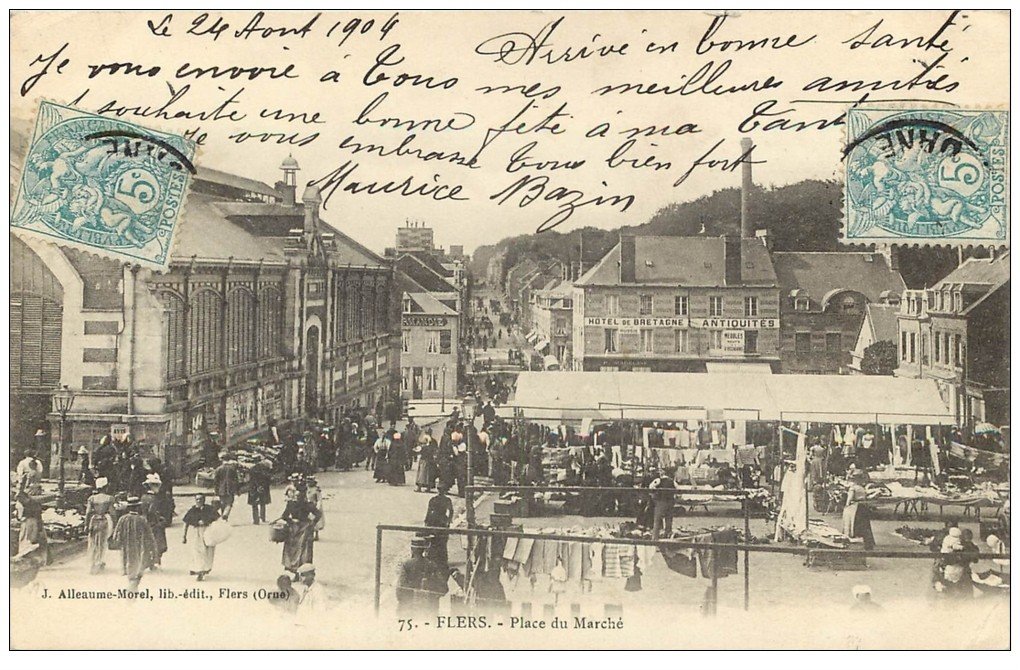 Le 24 Aout 1904
Arrivé en bonne santé
Je vous envoie à Tous mes meilleures amitiés
souhaite une bonne fête à ma Tante
Je vous embrasse Tous bien fort
Maurice Bazin
5c
POSTES
ORNE
5c
POSTES
ORNE
HÔTEL DE BRETAGNE
ANTIQUITÉS
MEUBLES
J. Alleaume-Morel, lib.-édit., Flers (Orne)
75. - FLERS. - Place du Marché